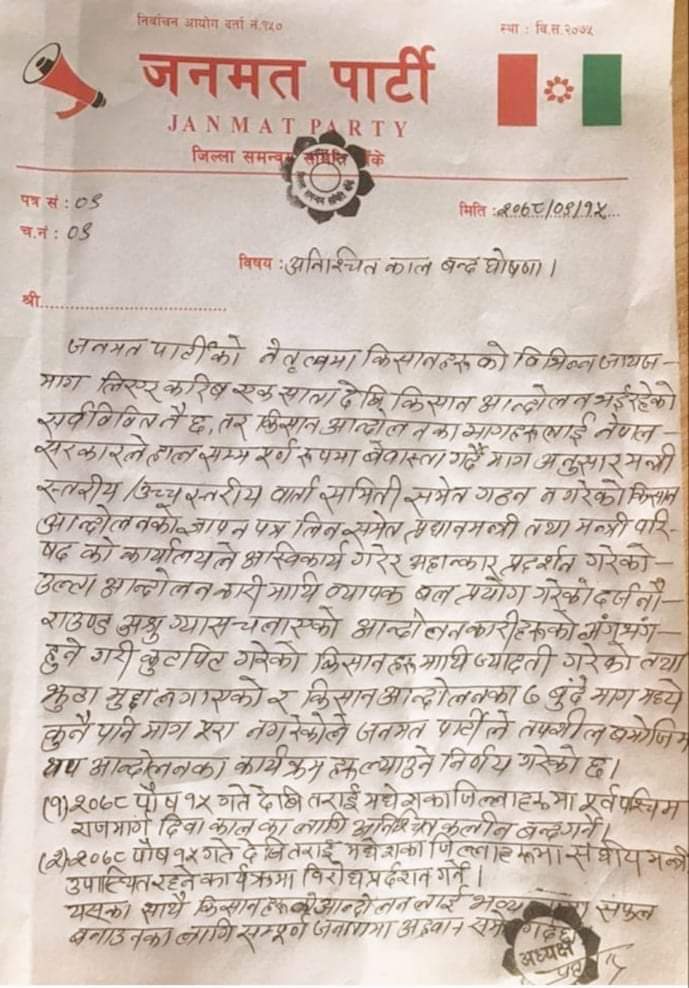 निर्वाचन आयोग दर्ता नं.१५०
स्था : वि.स.२०७५
जनमत पार्टी
JANMAT PARTY
जिल्ला समन्वय समिति बाँके
पत्र सं : ०९
च.नं : ०९
मिति :२०७८/०९/१५
विषय :अनिश्चित काल बन्द घोषणा ।
श्री
जनमत पार्टीको नेतृत्वमा किसानहरुको विभिन्न जायज-
माग लिएर करिब एक साता देखि किसान आन्दोलन भईरहेको
सर्वविदितै छ, तर किसान आन्दोलनका मागहरुलाई नेपाल-
सरकारले हाल सम्म पूर्ण रुपमा बेवास्ता गर्दै माग अनुसार मन्त्री
स्तरीय/उच्च स्तरीय वार्ता समिती समेत गठन नगरेको किसान
आन्दोलनको ज्ञापन पत्र लिन समेत प्रधानमन्त्री तथा मन्त्री परि-
षद को कार्यालयले अस्विकार्य गरेर अहान्कार प्रदर्शन गरेको-
उल्टा आन्दोलनकारी माथि व्यापक बल प्रयोग गरेको दर्जनौ-
राउण्ड अश्रु ग्यास चलाएको आन्दोलनकारीहरुको अंगभंग-
हुने गरी कुटपिट गरेको किसानहरु माथि ज्यादती गरेको तथा
झुठा मुद्दा लगाएको र किसान आन्दोलनका ७ बुँदे माग मध्ये
कुनै पनि माग पुरा नगरेकोले जनमत पार्टीले तपशील बमोजिम
थप आन्दोलनका कार्यक्रम हरु ल्याउने निर्णय गरेको छ।
(१) २०७८ पौष १५ गते देखि तराई मधेशका जिल्लाहरुमा पूर्व पश्चिम
राजमार्ग दिवा कालका लागि अनिश्चितकालीन बन्द गर्ने।
(२) २०७८ पौष १५ गते देखि तराई मधेशका जिल्लाहरुमा संघीय मन्त्री
उपस्थित रहने कार्यक्रममा विरोध प्रर्दशन गर्ने।
यसका साथै किसानहरुको आन्दोलनलाई भव्य सफल
बनाउनका लागि सम्पूर्ण जनतामा
अध्यक्ष